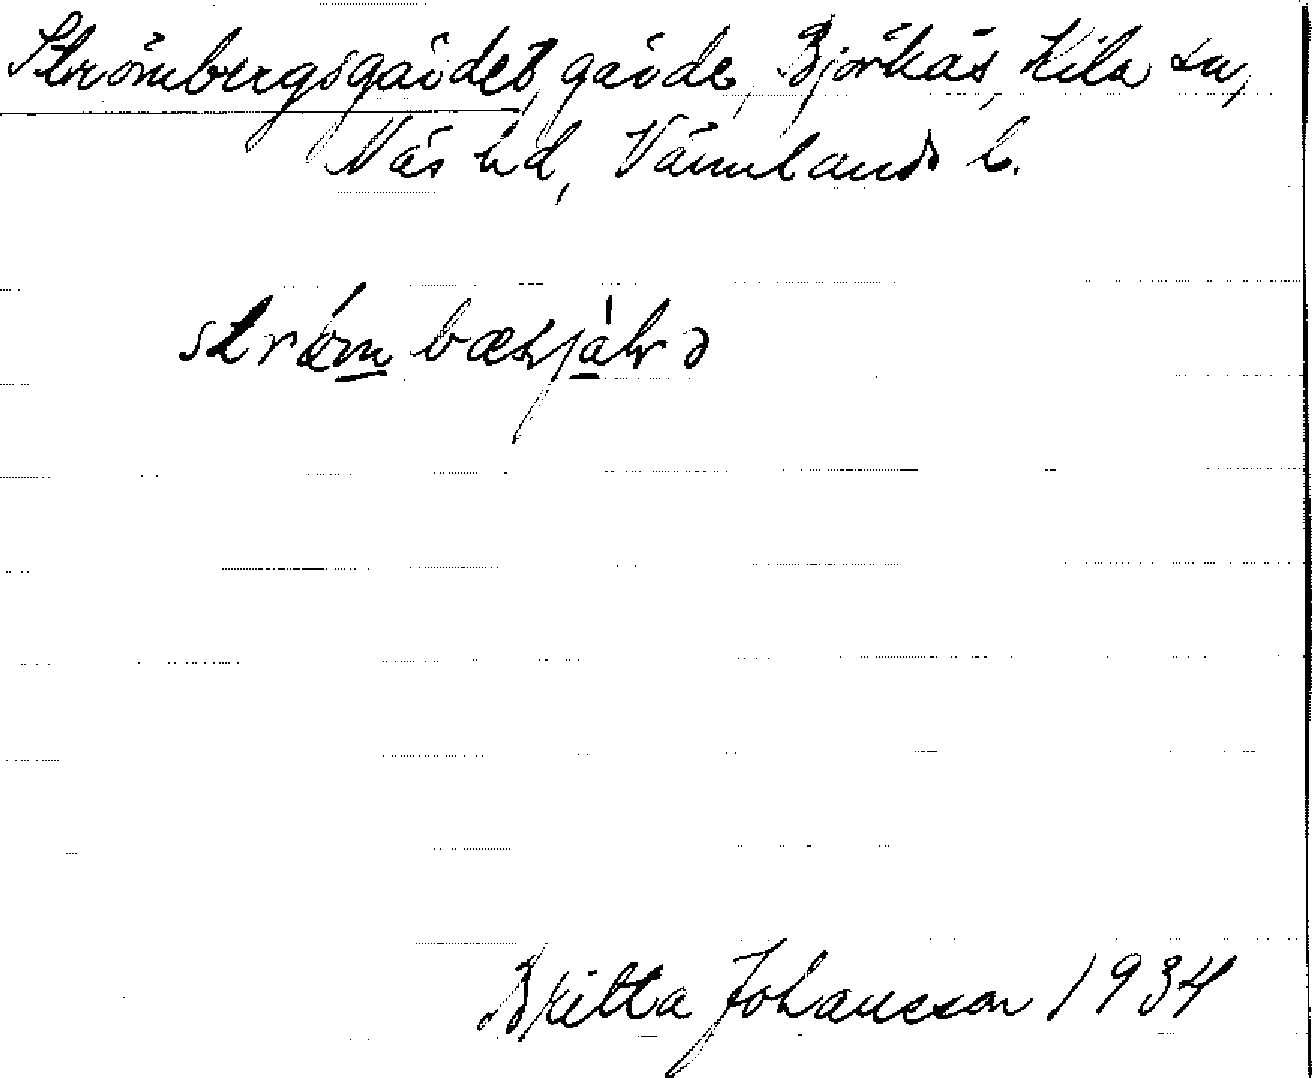 Strömbergsgärdet, gärde, Björkås, Kila sn,
Näs hd, Värmlands l.
Britta Johansson 1934